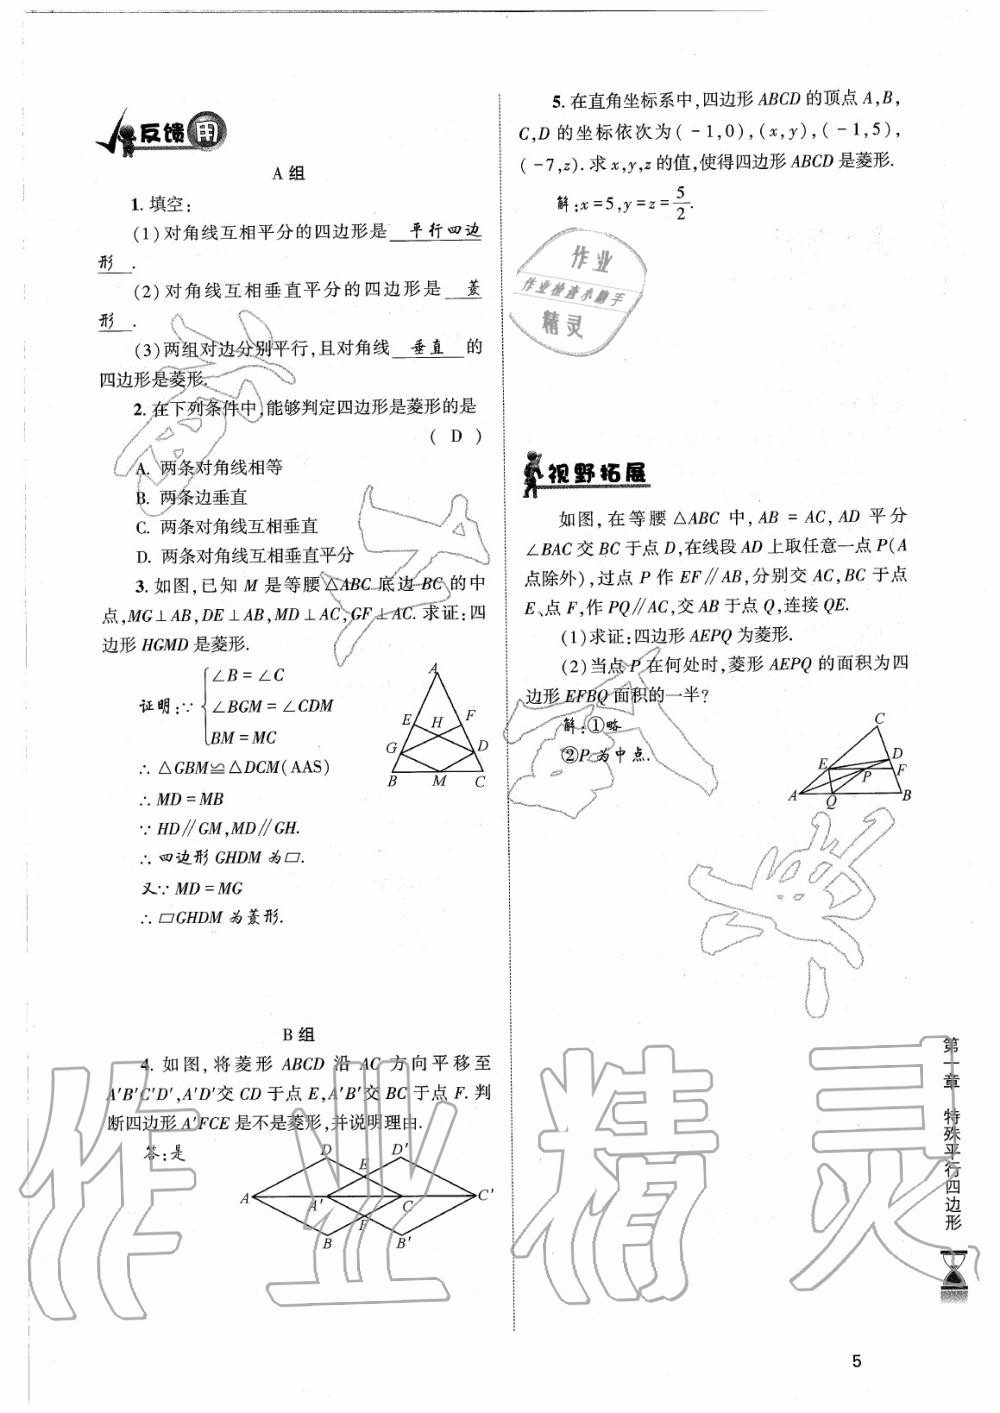 反馈用
A 组
1. 填空:
(1)对角线互相平分的四边形是 平行四边
形 .
(2)对角线互相垂直平分的四边形是 菱
形 .
(3)两组对边分别平行,且对角线 垂直 的
四边形是菱形.
2. 在下列条件中,能够判定四边形是菱形的是
( D )
A. 两条对角线相等
B. 两条边垂直
C. 两条对角线互相垂直
D. 两条对角线互相垂直平分
3. 如图,已知 M 是等腰△ABC 底边 BC 的中
点,MG⊥AB,DE⊥AB,MD⊥AC,GF⊥AC. 求证:四
边形 HGMD 是菱形.
∠B = ∠C
证明:∵ ∠BGM = ∠CDM
BM = MC
∴ △GBM≌△DCM(AAS)
∴ MD = MB
∵ HD∥GM,MD∥GH.
∴ 四边形 GHDM 为▱.
又∵ MD = MG
∴ ▱GHDM 为菱形.
A
E H F
G D
B M C
B 组
4. 如图,将菱形 ABCD 沿 AC 方向平移至
A'B'C'D',A'D'交 CD 于点 E,A'B'交 BC 于点 F. 判
断四边形 A'FCE 是不是菱形,并说明理由.
答:是
D D'
E
A A' C C'
F
B B'
5. 在直角坐标系中,四边形 ABCD 的顶点 A,B,
C,D 的坐标依次为( -1,0),(x,y),( -1,5),
( -7,z). 求 x,y,z 的值,使得四边形 ABCD 是菱形.
解:x = 5,y = z = 5/2.
作业
作业检查小助手
精灵
视野拓展
如图,在等腰△ABC 中,AB = AC,AD 平分
∠BAC 交 BC 于点 D,在线段 AD 上取任意一点 P(A
点除外),过点 P 作 EF∥AB,分别交 AC,BC 于点
E、点 F,作 PQ∥AC,交 AB 于点 Q,连接 QE.
(1)求证:四边形 AEPQ 为菱形.
(2)当点 P 在何处时,菱形 AEPQ 的面积为四
边形 EFBQ 面积的一半?
解:①略
②P 为中点.
C
E D
P F
A Q B
第一章 特殊平行四边形
作业精灵
5